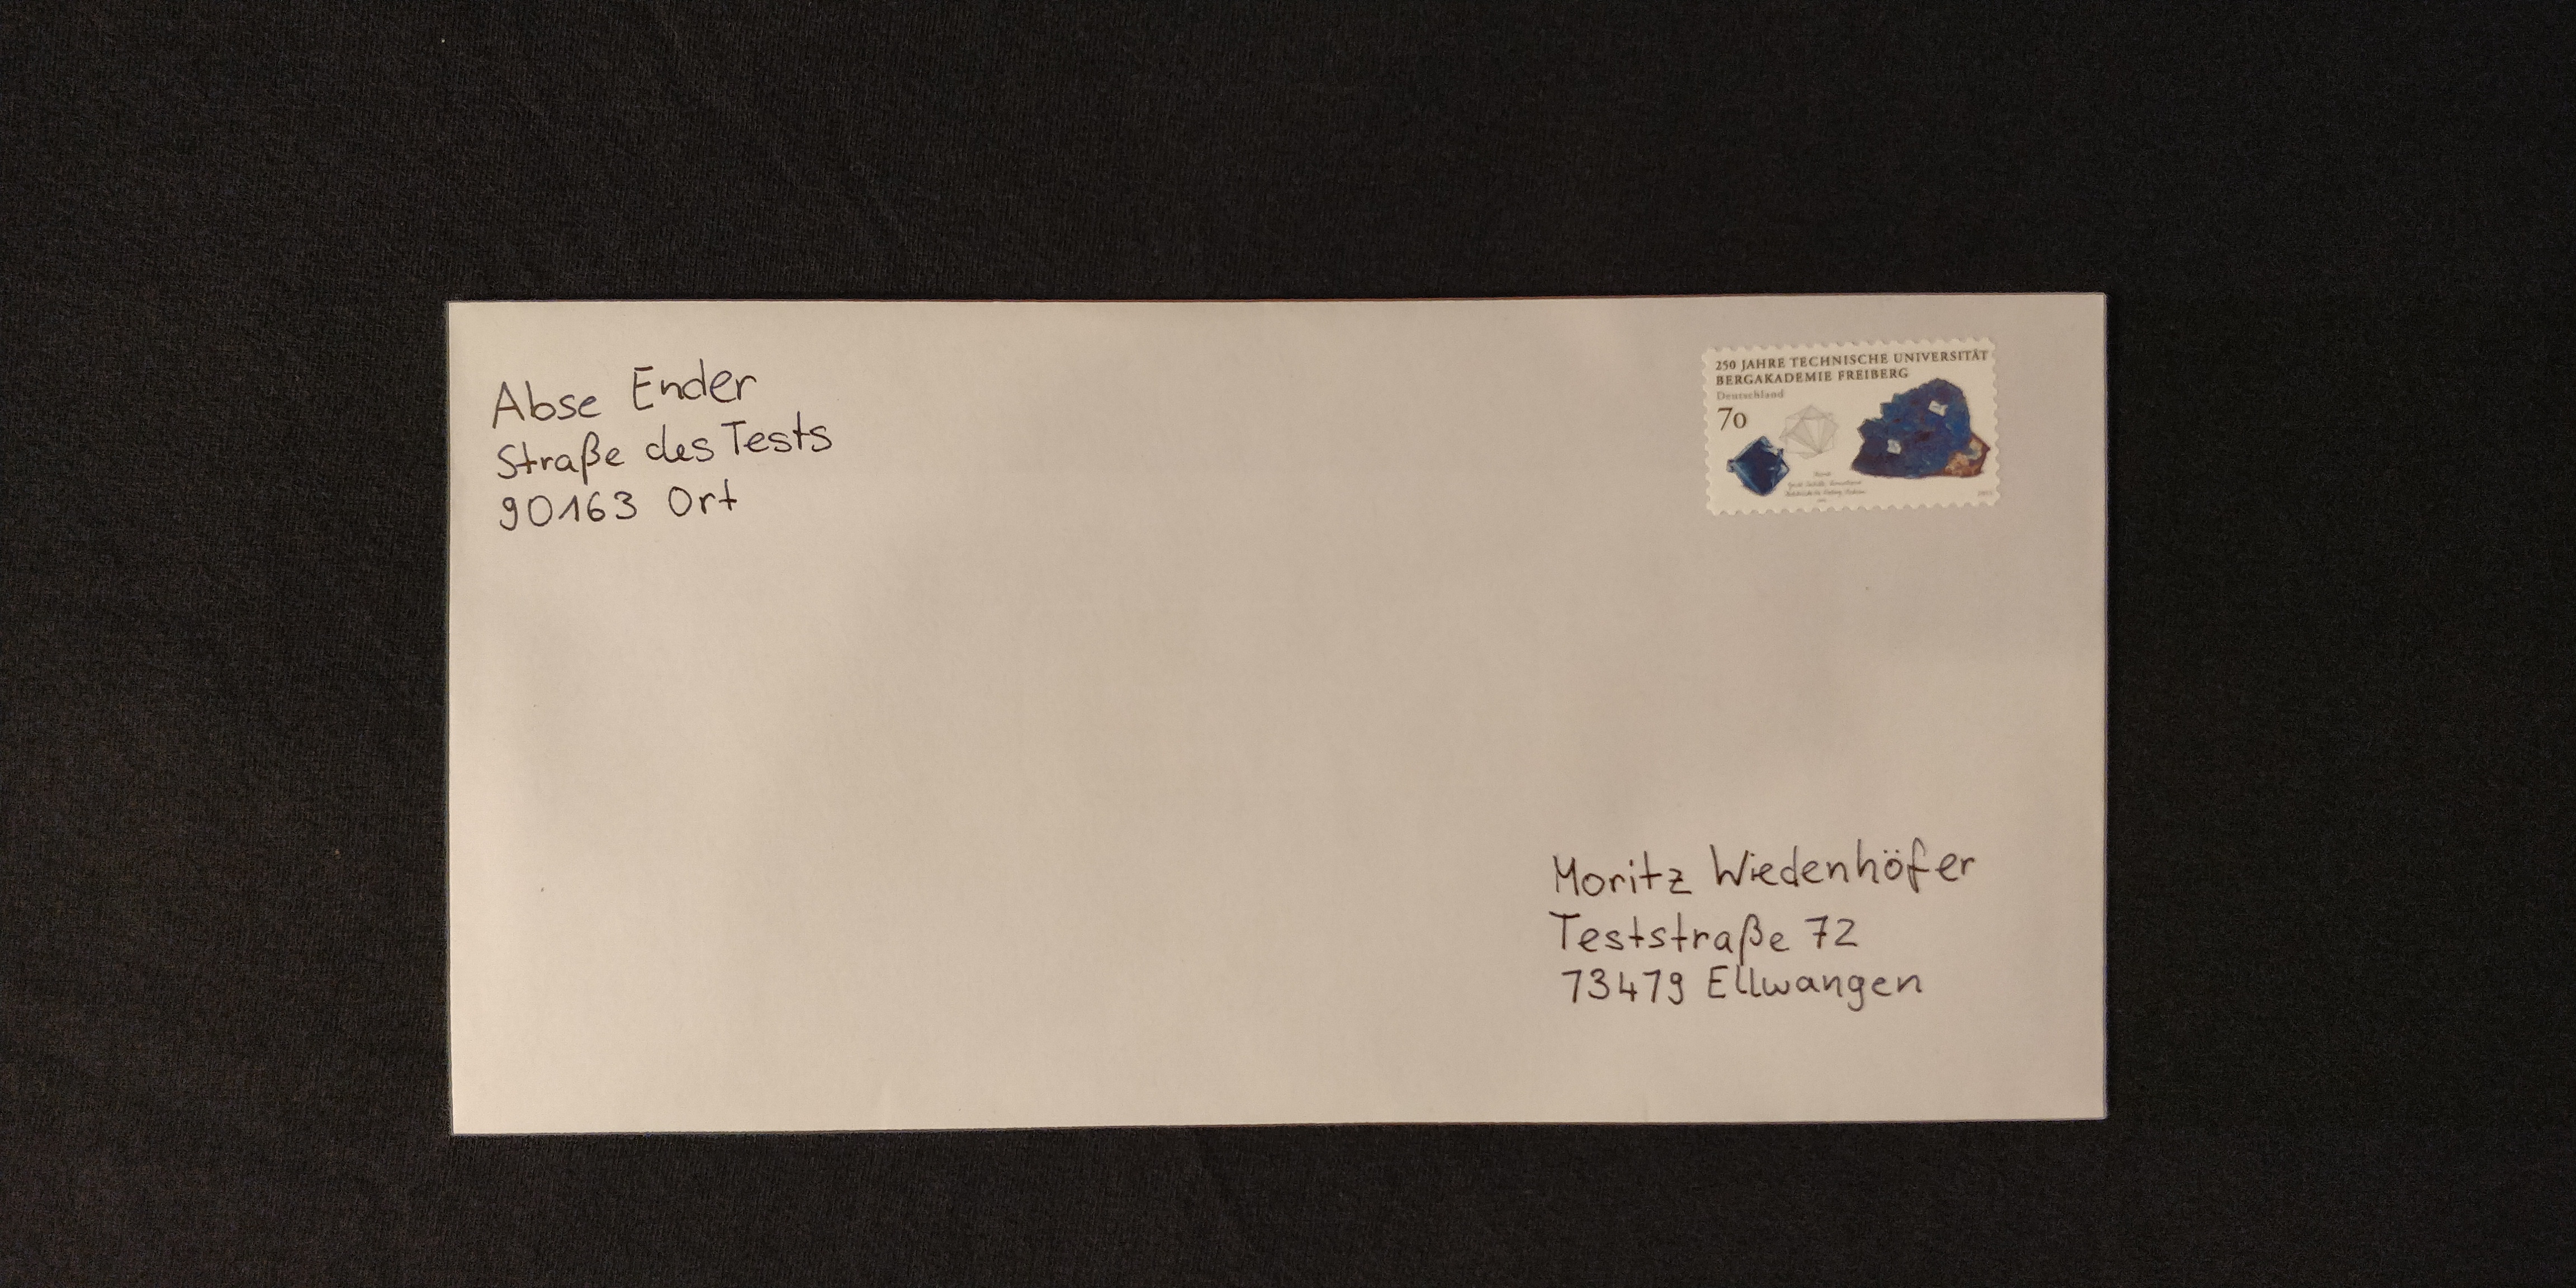 Abse Ender
Straße des Tests
90163 Ort
250 JAHRE TECHNISCHE UNIVERSITÄT
BERGAKADEMIE FREIBERG
Deutschland
70
Moritz Wiedenhöfer
Teststraße 72
73479 Ellwangen